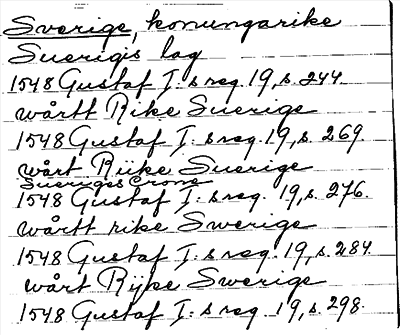 Sverige, konungarike
Suerigis lag
1548 Gustaf I:s reg. 19, s. 244.
wårtt Rike Suerige
1548 Gustaf I:s reg. 19, s. 269.
wårt Rijke Suerige
Sueriges Crone
1548 Gustaf I:s reg. 19, s. 276.
wårtt rike Swerige
1548 Gustaf I:s reg. 19, s. 284.
wårt Rijke Swerige
1548 Gustaf I:s reg. 19, s. 298.